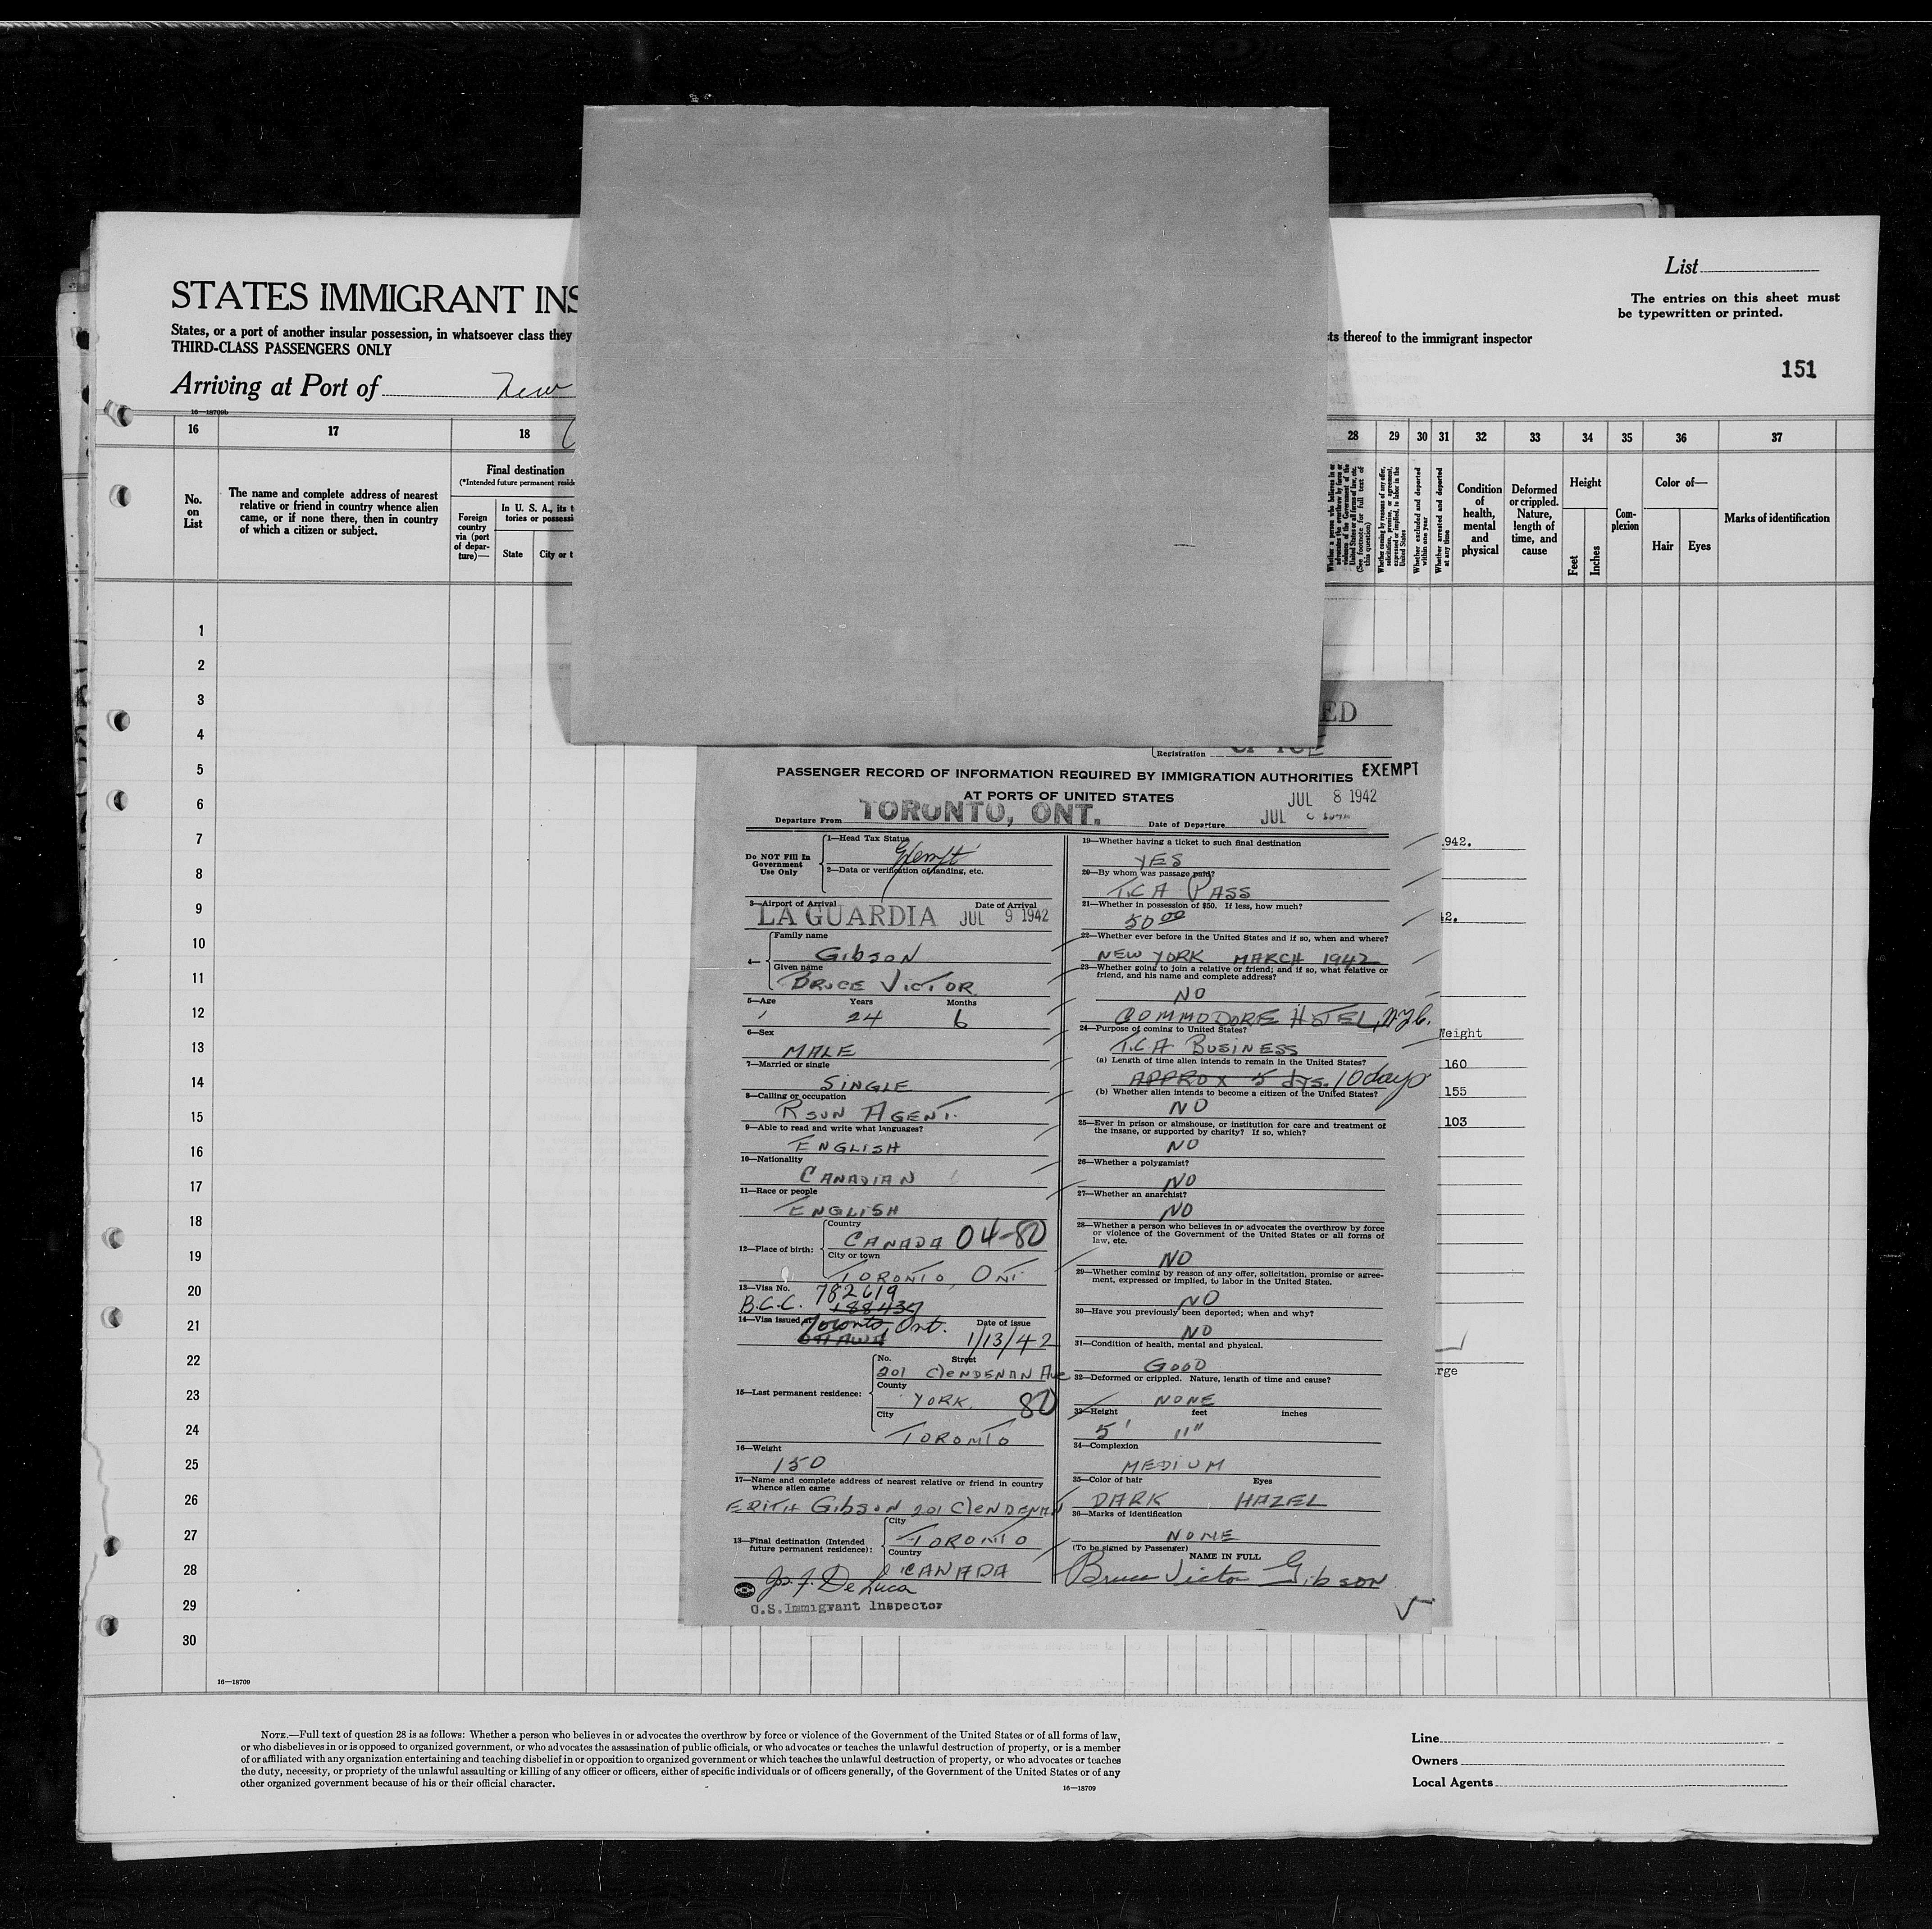 List
The entries on this sheet must
be typewritten or printed.
STATES IMMIGRANT INS
States, or a port of another insular possession, in whatsoever class they
ts thereof to the immigrant inspector
THIRD-CLASS PASSENGERS ONLY
151
Arriving at Port of New
16—18709b
16 17 18 28 29 30 31 32 33 34 35 36 37
No. on List
The name and complete address of nearest
relative or friend in country whence alien
came, or if none there, then in country
of which a citizen or subject.
Final destination
(*Intended future permanent reside
Foreign
country
via (port
of depar-
ture)—
In U. S. A., its t
tories or possessi
State City or t
Whether a person who believes in or
advocates the overthrow by force or
violence of the Government of the
United States or all forms of law, etc.
(See footnote for full text of
this question)
Whether coming by reasons of any offer,
solicitation, promise, or agreement,
expressed or implied, to labor in the
United States
Whether excluded and deported
within one year
Whether arrested and deported
at any time
Condition
of
health,
mental
and
physical
Deformed
or crippled.
Nature,
length of
time, and
cause
Height
Feet Inches
Com-
plexion
Color of—
Hair Eyes
Marks of identification
1
2
3
4
5
6
7
8
9
10
11
12
13
14
15
16
17
18
19
20
21
22
23
24
25
26
27
28
29
30
ED
Registration
PASSENGER RECORD OF INFORMATION REQUIRED BY IMMIGRATION AUTHORITIES EXEMPT
AT PORTS OF UNITED STATES JUL 8 1942
Departure From TORONTO, ONT. Date of Departure JUL
Do NOT Fill In
Government
Use Only
1—Head Tax Status
Exempt
2—Data or verification of landing, etc.
3—Airport of Arrival Date of Arrival
LA GUARDIA JUL 9 1942
4— Family name
GIBSON
Given name
BRUCE VICTOR
5—Age Years Months
24 6
6—Sex
MALE
7—Married or single
SINGLE
8—Calling or occupation
RSVN AGENT.
9—Able to read and write what languages?
ENGLISH
10—Nationality
CANADIAN
11—Race or people
ENGLISH
12—Place of birth: Country
CANADA 04-80
City or town
TORONTO, ONT
13—Visa No. 782619
B.C.C. 188437
14—Visa issued at Toronto, Ont. Date of issue
OTTAWA 1/13/42
15—Last permanent residence:
No. Street
201 CLENDENAN Ave
County
YORK 80
City
TORONTO
16—Weight
150
17—Name and complete address of nearest relative or friend in country
whence alien came
EDITH GIBSON 201 CLENDENAN
18—Final destination (Intended
future permanent residence):
City
TORONTO
Country
CANADA
Jos. J. De Luca
U.S. Immigrant Inspector
19—Whether having a ticket to such final destination
YES
20—By whom was passage paid?
T.C.A PASS
21—Whether in possession of $50. If less, how much?
50 00
22—Whether ever before in the United States and if so, when and where?
NEW YORK MARCH 1942
23—Whether going to join a relative or friend; and if so, what relative or
friend, and his name and complete address?
NO
COMMODORE HOTEL, N.Y.C.
24—Purpose of coming to United States?
T.C.A BUSINESS
(a) Length of time alien intends to remain in the United States?
APPROX 5 dys. 10 days
(b) Whether alien intends to become a citizen of the United States?
NO
25—Ever in prison or almshouse, or institution for care and treatment of
the insane, or supported by charity? If so, which?
NO
26—Whether a polygamist?
NO
27—Whether an anarchist?
NO
28—Whether a person who believes in or advocates the overthrow by force
or violence of the Government of the United States or all forms of
law, etc.
NO
29—Whether coming by reason of any offer, solicitation, promise or agree-
ment, expressed or implied, to labor in the United States.
NO
30—Have you previously been deported; when and why?
NO
31—Condition of health, mental and physical.
GOOD
32—Deformed or crippled. Nature, length of time and cause?
NONE
33—Height feet inches
5' 11"
34—Complexion
MEDIUM
35—Color of hair Eyes
DARK HAZEL
36—Marks of identification
NONE
(To be signed by Passenger) NAME IN FULL
Bruce Victor Gibson
942.
42.
Weight
160
155
103
rge
16—18709
NOTE.—Full text of question 28 is as follows: Whether a person who believes in or advocates the overthrow by force or violence of the Government of the United States or of all forms of law,
or who disbelieves in or is opposed to organized government, or who advocates the assassination of public officials, or who advocates or teaches the unlawful destruction of property, or is a member
of or affiliated with any organization entertaining and teaching disbelief in or opposition to organized government or which teaches the unlawful destruction of property, or who advocates or teaches
the duty, necessity, or propriety of the unlawful assaulting or killing of any officer or officers, either of specific individuals or of officers generally, of the Government of the United States or of any
other organized government because of his or their official character.
16—18709
Line
Owners
Local Agents